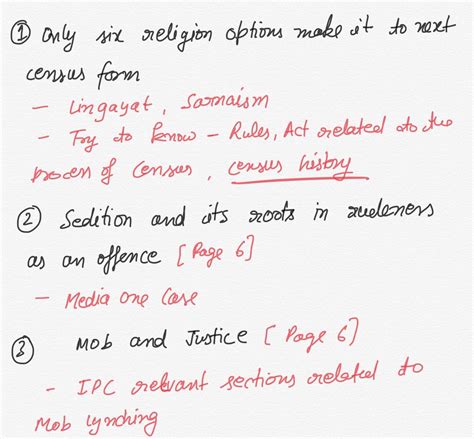 ① Only six religion options make it to next
census form
– Lingayat, Sarnaism
– Try to know – Rules, Act related to the
process of census, census history
② Sedition and its roots in rudeness
as an offence [Page 6]
– Media One Case
③ Mob and Justice [Page 6]
– IPC relevant sections related to
Mob lynching